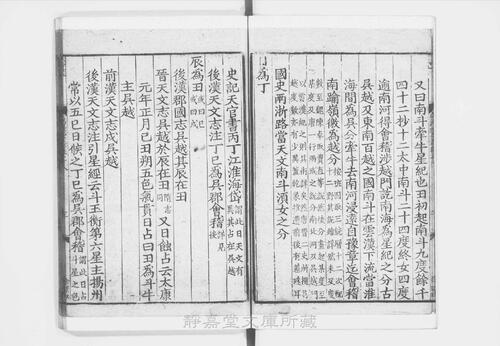 又曰南斗牽牛星紀也丑初起南斗九度餘千
四十二秒十二太中南斗二十四度終女四度
逾南河得會稽涉越門訖南海為星紀之分古
吳越及東南百越之國南斗在雲漢下流當淮
海間為吳分牽牛去南河浸遠自豫章迄會稽
南踰嶺徼為越分
國史兩浙路當天文南斗須女之分
為丁
史記天官書丙丁江淮海岱謂此日天文有異其占在吳越
後漢天文志注丁巳為吳郡會稽詳見
辰為丑
後漢郡國志吳越其辰在丑
晉天文志吳越於辰在丑 又日蝕占云太康
元年正月己丑朔五色氣貫日占曰丑為斗牛
主吳越
前漢天文志戌吳越
後漢天文志注引星經云斗玉衡第六星主揚州
常以五巳日候之丁巳為吳郡會稽謂此日占斗星之色
靜嘉堂文庫所藏